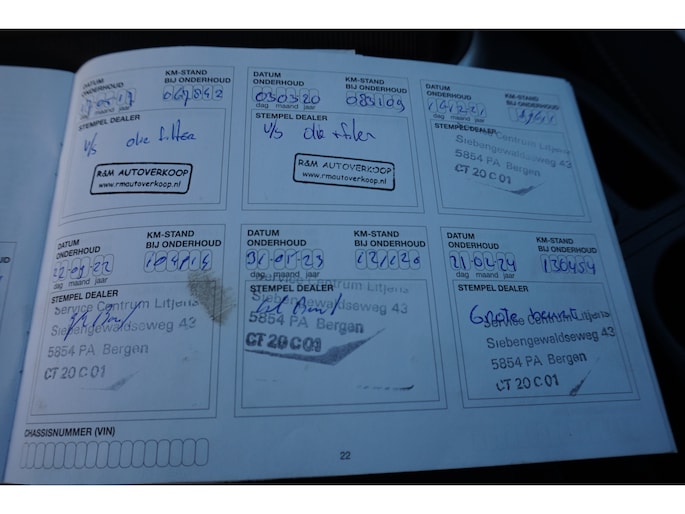 DATUM ONDERHOUD
KM-STAND BIJ ONDERHOUD
067842
dag maand jaar
STEMPEL DEALER
v/s olie filter
R&M AUTOVERKOOP
www.rmautoverkoop.nl
DATUM ONDERHOUD
KM-STAND BIJ ONDERHOUD
030320
083109
dag maand jaar
STEMPEL DEALER
v/s olie + filer
R&M AUTOVERKOOP
www.rmautoverkoop.nl
DATUM ONDERHOUD
KM-STAND BIJ ONDERHOUD
dag maand jaar
STEMPEL DEALER
Service Centrum Litjens
Siebengewaldseweg 43
5854 PA Bergen
CT 20 C 01
DATUM ONDERHOUD
KM-STAND BIJ ONDERHOUD
22-09-22
dag maand jaar
STEMPEL DEALER
Service Centrum Litjens
Siebengewaldseweg 43
5854 PA Bergen
CT 20 C 01
DATUM ONDERHOUD
KM-STAND BIJ ONDERHOUD
31-05-23
121120
dag maand jaar
STEMPEL DEALER
Service Centrum Litjens
Siebengewaldseweg 43
5854 PA Bergen
CT 20 C 01
DATUM ONDERHOUD
KM-STAND BIJ ONDERHOUD
21-04-24
130454
dag maand jaar
STEMPEL DEALER
Grote beurt
Service Centrum Litjens
Siebengewaldseweg 43
5854 PA Bergen
CT 20 C 01
CHASSISNUMMER (VIN)
22